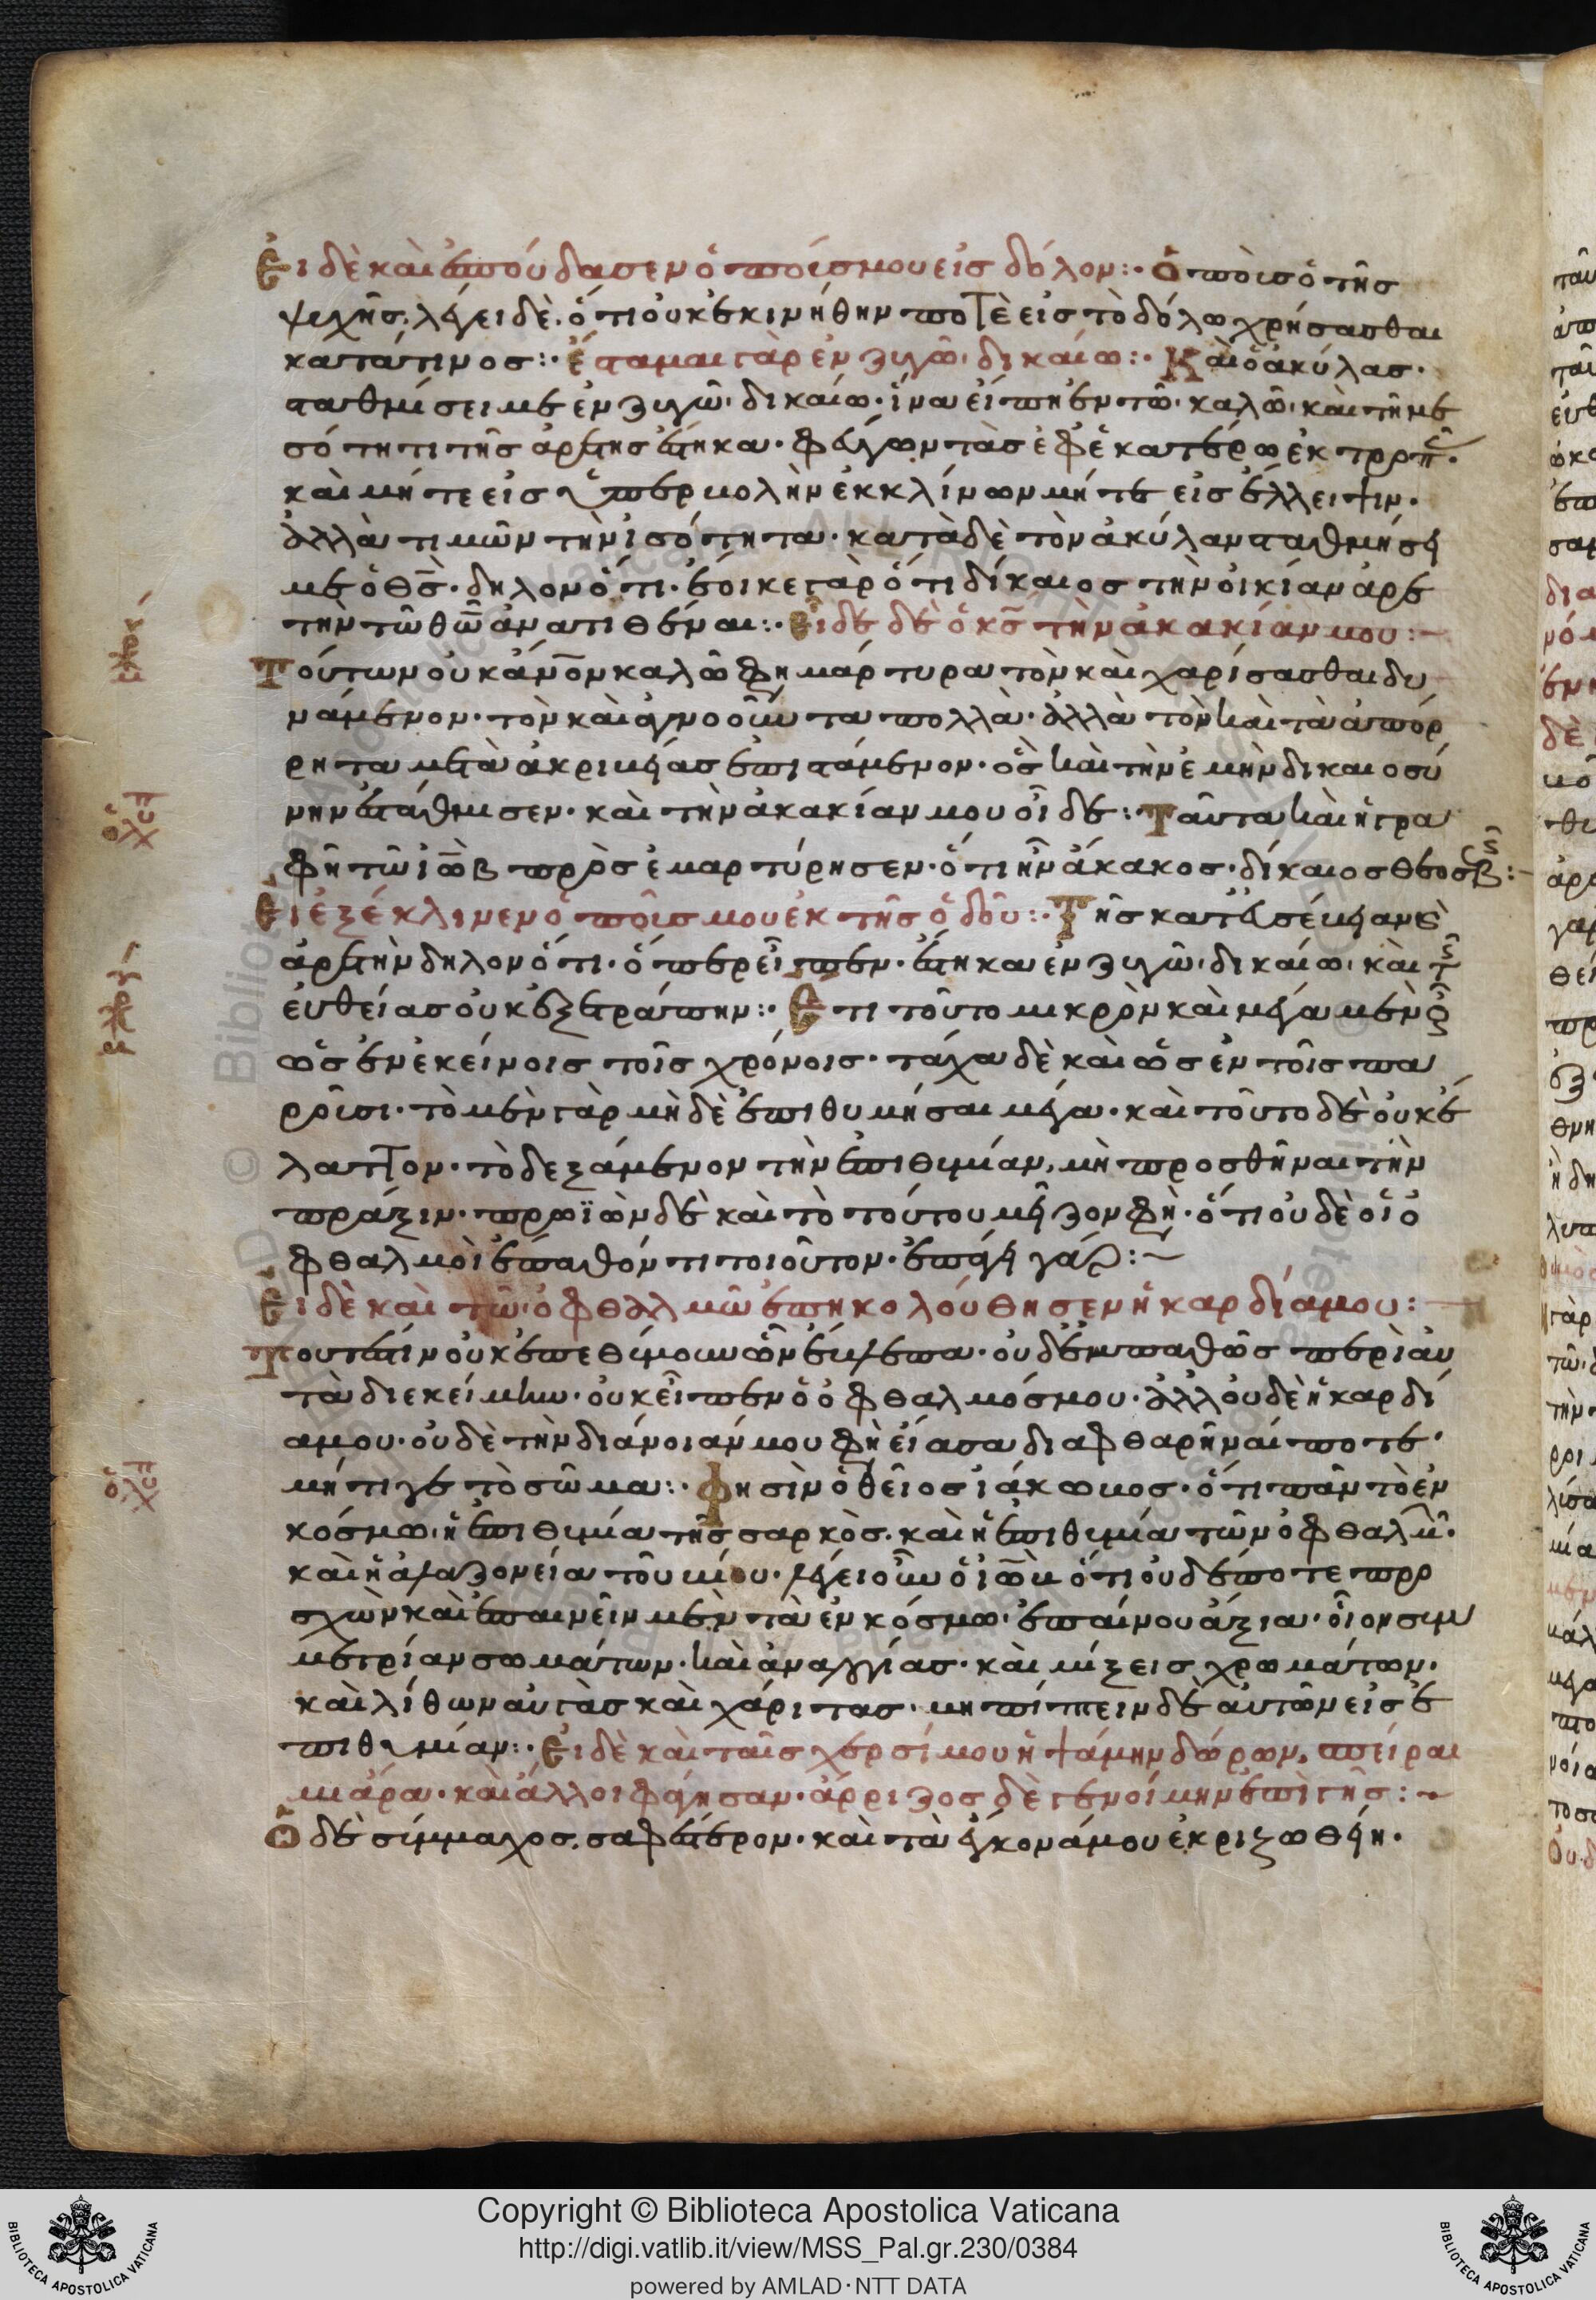 Εἰ δὲ καὶ ἐσπούδασεν ὁ ποῦς μου εἰς δόλον:· Ὁ ποὺς ὁ τῆς
ψυχῆς· λέγει δὲ· ὅτι οὐκ ἐκινήθην ποτὲ εἰς τὸ δόλω χρήσασθαι
κατά τινος:· ἕσταμαι γὰρ ἐν ζυγῶ δικαίω:· Καὶ ὁ ἀκύλας·
σταθμίσει με ἐν ζυγῶ δικαίω· ἵνα εἴπη ἐν τῶ καλῶ καὶ τῆ με
σότητι τῆς ἀρετῆς ἕστηκα· φεύγων τὰς ἐφ' ἑκατέρω ἐκτροπ
καὶ μήτε εἰς ὑπερβολὴν ἐκκλίνων μήτε εἰς ἔλλειψιν·
ἀλλὰ τιμῶν τὴν ἰσότητα· κατὰ δὲ τὸν ἀκύλαν σταθμήσει
με ὁ θς· δηλονότι· ἔοικε γὰρ ὅτι δίκαιος τὴν οἰκίαν ἀρε
τὴν τῶ θω ἀνατιθέναι:· Εἶδε δὲ ὁ κς τὴν ἀκακίαν μου:
Τούτων οὐκ ἀνον καλῶ φη μάρτυρα τὸν καὶ χαρίσασθαι δυ
νάμενον· τὸν καὶ ἀγνοοῦντα πολλὰ· ἀλλὰ τὸν καὶ τὰ ἀπόρ
ρητα μετὰ ἀκριβείας ἐπιστάμενον· ὃς καὶ τὴν ἐμὴν δικαιοσύ
νην ἐστάθμισεν· καὶ τὴν ἀκακίαν μου οἶδε: Ταῦτα καὶ ἡ γρα
φὴ τῶ ἰὼβ προσεμαρτύρησεν· ὅτι ἦν ἄκακος· δίκαιος θεοσεβ:
Εἰ ἐξέκλινεν ὁ ποῦς μου ἐκ τῆς ὁδοῦ:· Τῆς κατ' εὐσέβειαν κ
ἀρετὴν δηλονότι· ὅπερ εἶπεν· ἕστηκα ἐν ζυγῶ δικαίω· καὶ τ
εὐθείας οὐκ ἐξετράπην:· Ἔτι τοῦτο μικρὸν καὶ μέγα μὲν
ὡς ἐν ἐκείνοις τοῖς χρόνοις· τάχα δὲ καὶ ὡς ἐν τοῖς πα
ροῦσι· τὸ μὲν γὰρ μὴ δὲ ἐπιθυμῆσαι μέγα· καὶ τοῦτο δὲ οὐκ ἔ
λαττον· τὸ δεξάμενον τὴν ἐπιθυμίαν, μὴ προσθῆναι τὴν
πράξιν· προϊὼν δὲ καὶ τὸ τούτου μεῖζον φὴ· ὅτι οὐδὲ οἱ ὀ
φθαλμοὶ ἔπαθόν τι τοιοῦτον· ἐπάγει γάρ:
Εἰ δὲ καὶ τῶ ὀφθαλμῶ ἐπηκολούθησεν ἡ καρδία μου:
Τουτέστιν οὐκ ἐπεθύμουν ὧν ἔβλεπα· οὐδ' ἐμπαθῶς περὶ αὐ
τὰ διεκείμην· οὐκ εἶπεν ὁ ὀφθαλμός μου· ἀλλ' οὐδὲ ἡ καρδί
α μου· οὐδὲ τὴν διάνοιάν μου φὴ εἴασα διαφθαρῆναί ποτε·
μήτι γε τὸ σῶμα:· Φησὶν ὁ θεῖος ἰάκωβος· ὅτι πᾶν τὸ ἐν
κόσμω· ἡ ἐπιθυμία τῆς σαρκὸς· καὶ ἡ ἐπιθυμία τῶν ὀφθαλμ·
καὶ ἡ ἀλαζονεία τοῦ βίου· λέγει οὖν ὁ ἰὼβ ὅτι οὐδέποτε προ
σχὼν καὶ ἐπαινεῖν μὲν τὰ ἐν κόσμω· ἐπαίνου ἄξια· οἷον συμ
μετρίαν σωμάτων· καὶ ἀναλογίας· καὶ μίξεις χρωμάτων·
καὶ λίθων αὐγὰς καὶ χάριτας· μὴ πίπτειν δὲ αὐτῶν εἰς ἐ
πιθυμίαν:· Εἰ δὲ καὶ ταῖς χερσί μου ἡψάμην δώρων, σπείραι
μι ἄρα· καὶ ἄλλοι φάγησαν· ἄρριζος δὲ γενοίμην ἐπὶ γῆς:
Ὁ δὲ σύμμαχος, σαφέστερον· καὶ τὰ ἔγκονά μου ἐκριζωθείη·
Copyright © Biblioteca Apostolica Vaticana
http://digi.vatlib.it/view/MSS_Pal.gr.230/0384
powered by AMLAD·NTT DATA
BIBLIOTECA APOSTOLICA VATICANA
BIBLIOTECA APOSTOLICA VATICANA